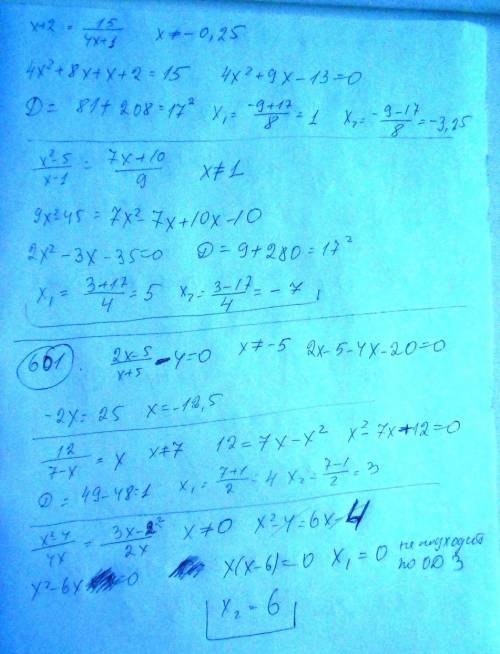 x+2 = 15/(4x+1)   x ≠ -0,25
4x²+8x+x+2=15   4x²+9x-13=0
D = 81+208=17²   x₁ = (-9+17)/8 = 1   x₂ = (-9-17)/8 = -3,25
(x²-5)/(x-1) = (7x+10)/9   x≠1
9x²-45 = 7x²-7x+10x-10
2x²-3x-35=0   D=9+280=17²
x₁ = (3+17)/4 = 5   x₂ = (3-17)/4 = -7
601. (2x-5)/(x+5) - 4=0   x≠-5   2x-5-4x-20=0
-2x= 25   x=-12,5
12/(7-x) = x   x≠7   12=7x-x²   x²-7x+12=0
D = 49-48=1   x₁ = (7+1)/2 = 4   x₂ = (7-1)/2 = 3
(x²-4)/4x = (3x-2)/2x   x≠0   x²-4=6x-4
x²-6x =0   x(x-6)=0   x₁=0 не подходит по ОДЗ
x₂ = 6